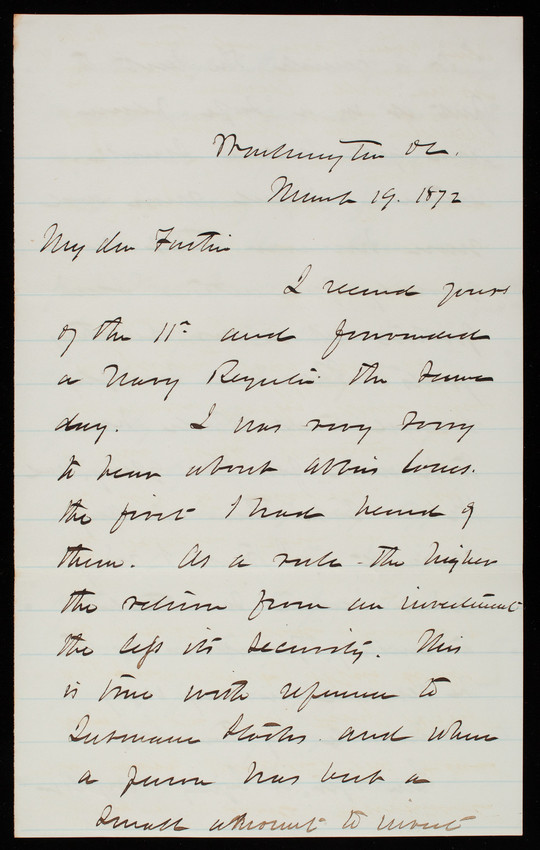 Washington DC.
March 19. 1872
My dear
I received yours
of the 11th and forwarded
a Navy Register the same
day. I was very sorry
to hear about Abbies losses.
the first I had heard of
them. As a rule the higher
the return from an investment
the less its security. This
is true with reference to
Insurance Stocks. and when
a person has but a
small amount to invest